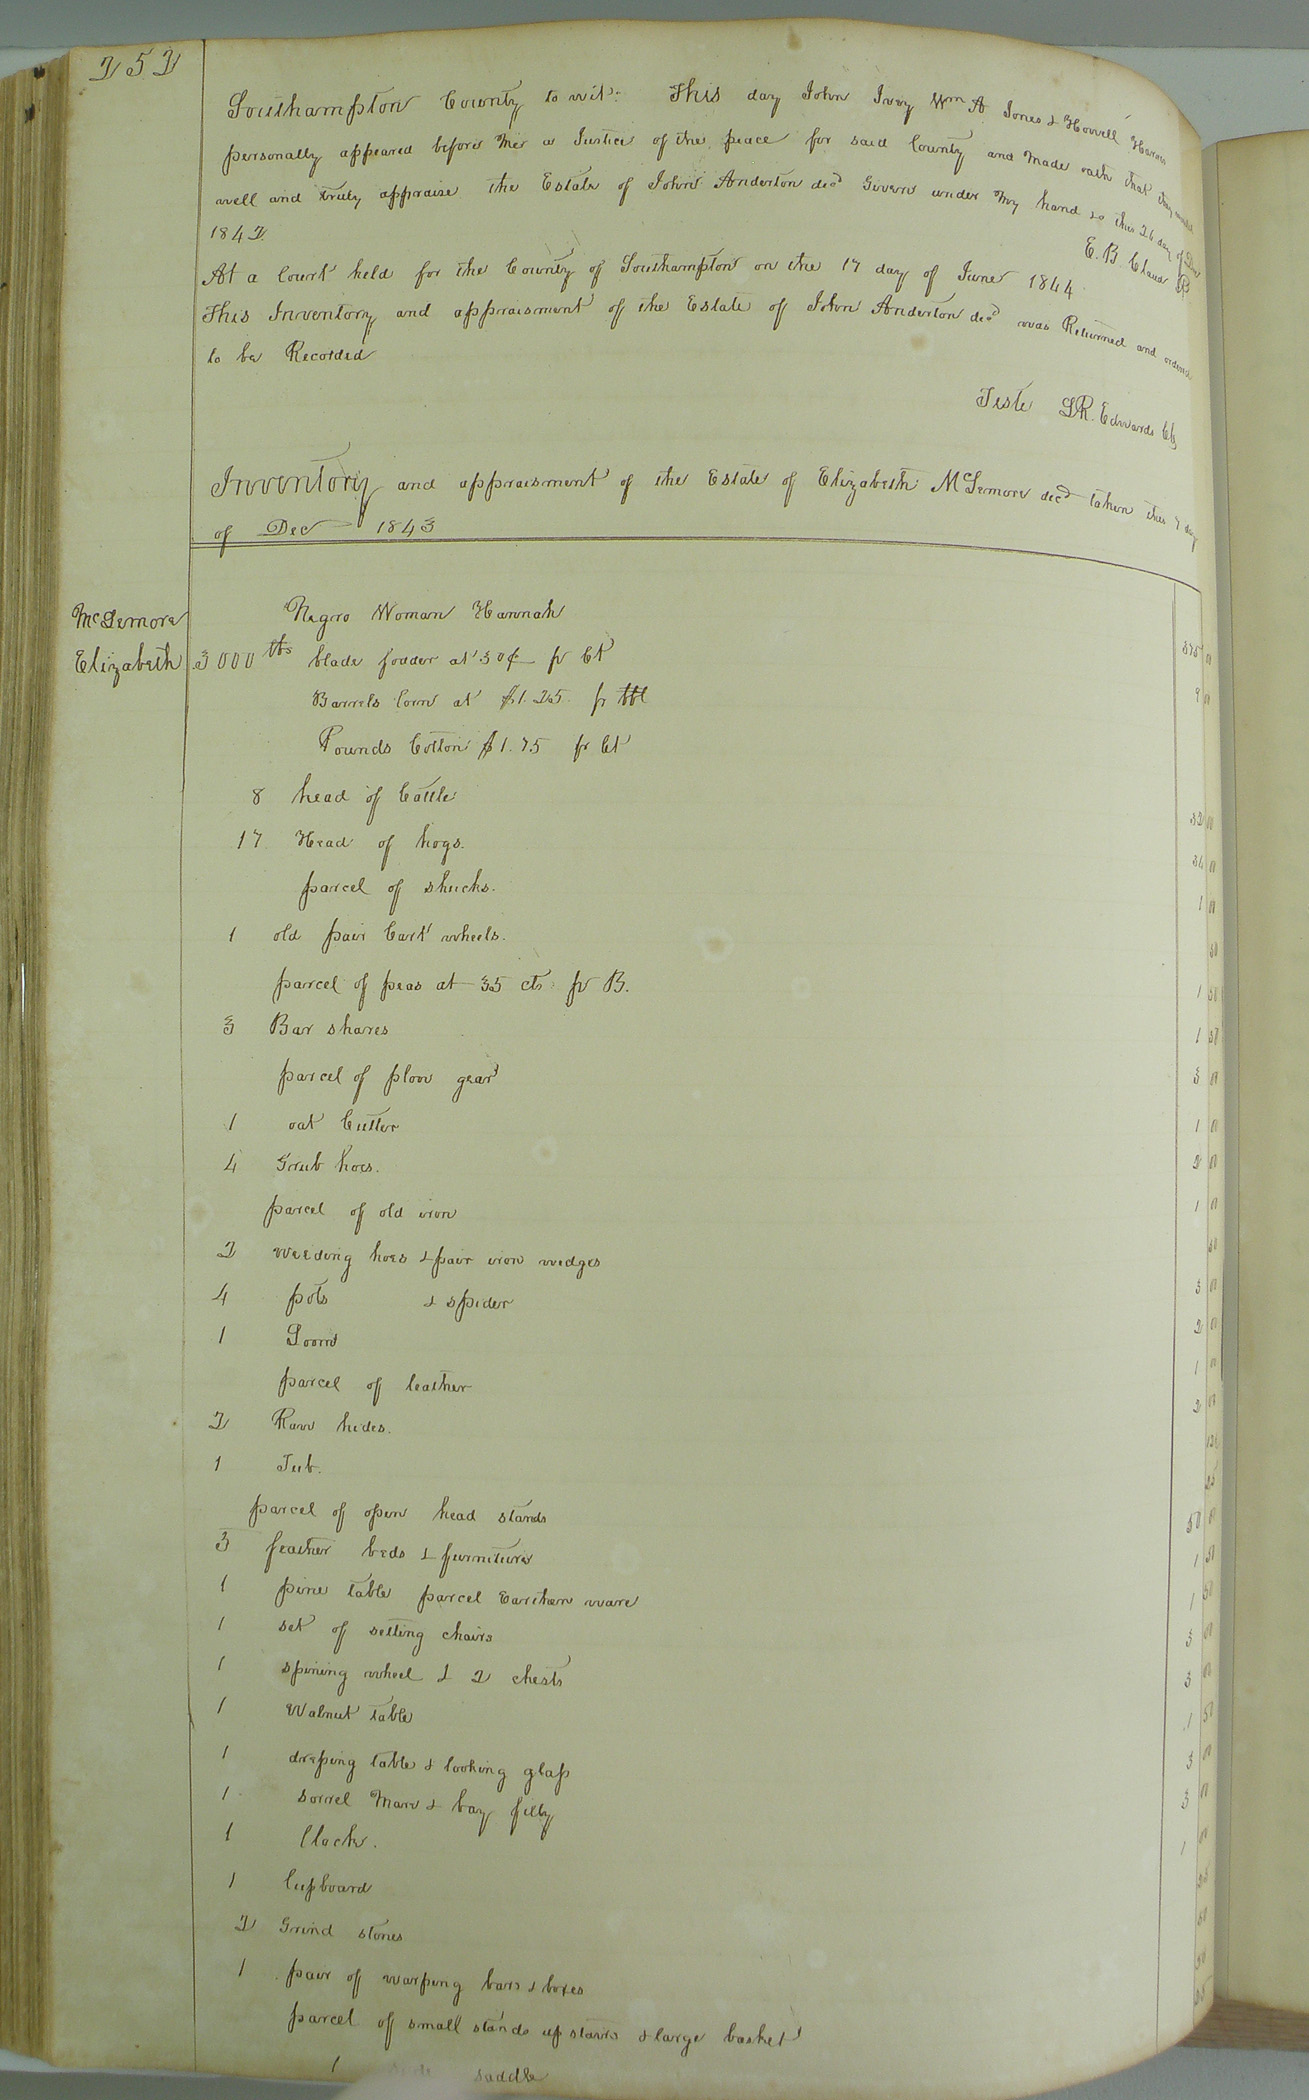 252
Southampton County to wit: This day John Ivey Wm A Jones & Howell Harris
personally appeared before me a Justice of the peace for said County and made oath that they would
well and truly appraise the Estate of John Anderton decd Given under my hand this 26 day of
1842.
E. B. Claud
At a Court held for the County of Southampton on the 17 day of June 1844
This Inventory and appraisment of the Estate of John Anderton decd was Returned and ordered
to be Recorded
Teste LR. Edwards Clk
Inventory and appraisment of the Estate of Elizabeth McLemore decd taken this 7 day
of Dec 1843
McLemore
Elizabeth
Negro Woman Hannah
3000 lbs blade fodder at 30¢ pr Ct 9 00
Barrels Corn at $1.25 pr bbl
Pounds Cotton $1.75 pr Ct
8 head of Cattle 32 00
17 Head of hogs. 34 00
parcel of shucks. 1 00
1 old pair Cart wheels. 50
parcel of peas at 35 cts pr B. 1 50
3 Bar shares 1 50
parcel of plow gear 3 00
1 oat Cutter 1 00
4 Grub hoes. 2 00
parcel of old iron 1 00
2 Weeding hoes & pair iron wedges 50
4 pots & spider 3 00
1 Loom 2 00
parcel of leather 1 00
2 Raw hides. 2 00
1 Tub.
parcel of open head stands 25
3 feather beds & furniture 50 00
1 pine table parcel Earthen ware 1 50
1 set of setting chairs 1 50
1 spining wheel & 2 chests 3 00
1 Walnut table 3 00
1 dressing table & looking glass 1 50
1 sorrel Mare & bay filly
1 Clock.
1 Cupboard
2 Grind stones
1 pair of warping bars & boxes
parcel of small stands up stairs & large basket
1 saddle